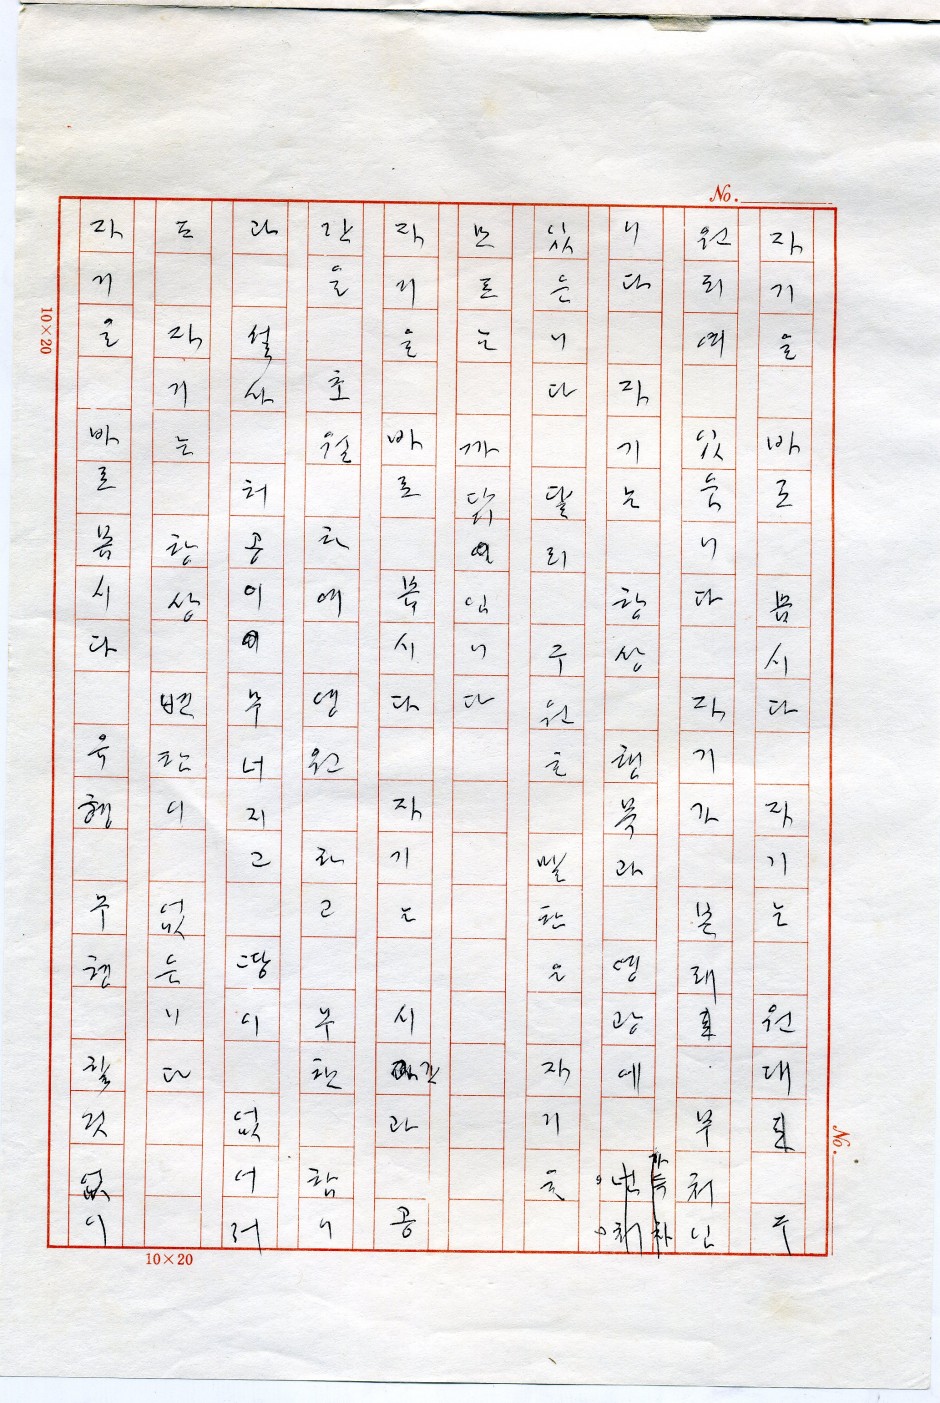 No.
자기을 바로 봅시다 자기는 원래 구
원되여 있읍니다 자기가 본래 부처님
니다 자기는 항상 행복과 영광에 넌처
있은니다 달리 구원을 자기을
모르는 까닭임니다
자기을 바로 봅시다 자기는 시간과 공
간을 초월하여 영원하고 무한함니
다 설사 허공이 무너지고 땅이 없어저
도 자기는 항상 변함이 없슨니다
자기을 바로 봅시다 유형 무형 할것없이
10×20
No.
10×20